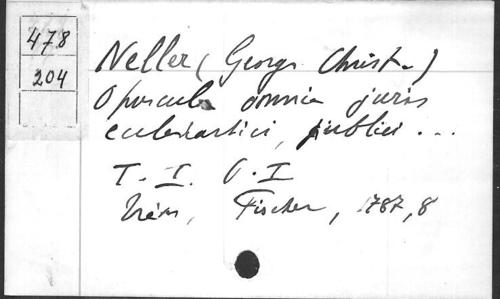 478
204
Neller (Georg Christ.)
Opuscula omnia juris
ecclesiastici, publici ...
T. I. V. I
Fischer, 1787, 8